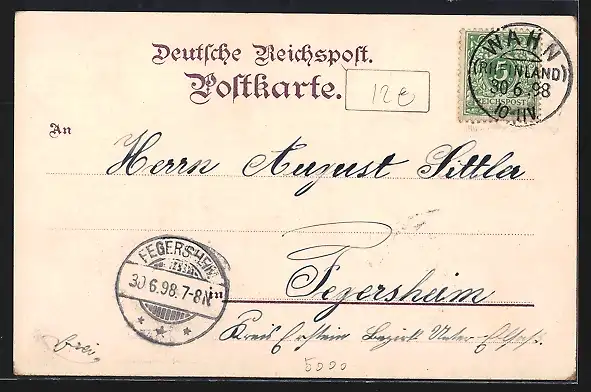 Deutsche Reichspost.
Postkarte.
12€
WAHN
(RHEINLAND)
30 6.98
10-11V.
5
REICHSPOST
An
Herrn August Sittler
FEGERSHEIM
30 6.98.7-8N
in
Fegersheim
Kreis Erstein Bezirk Unter-Elsaß
frei
5000